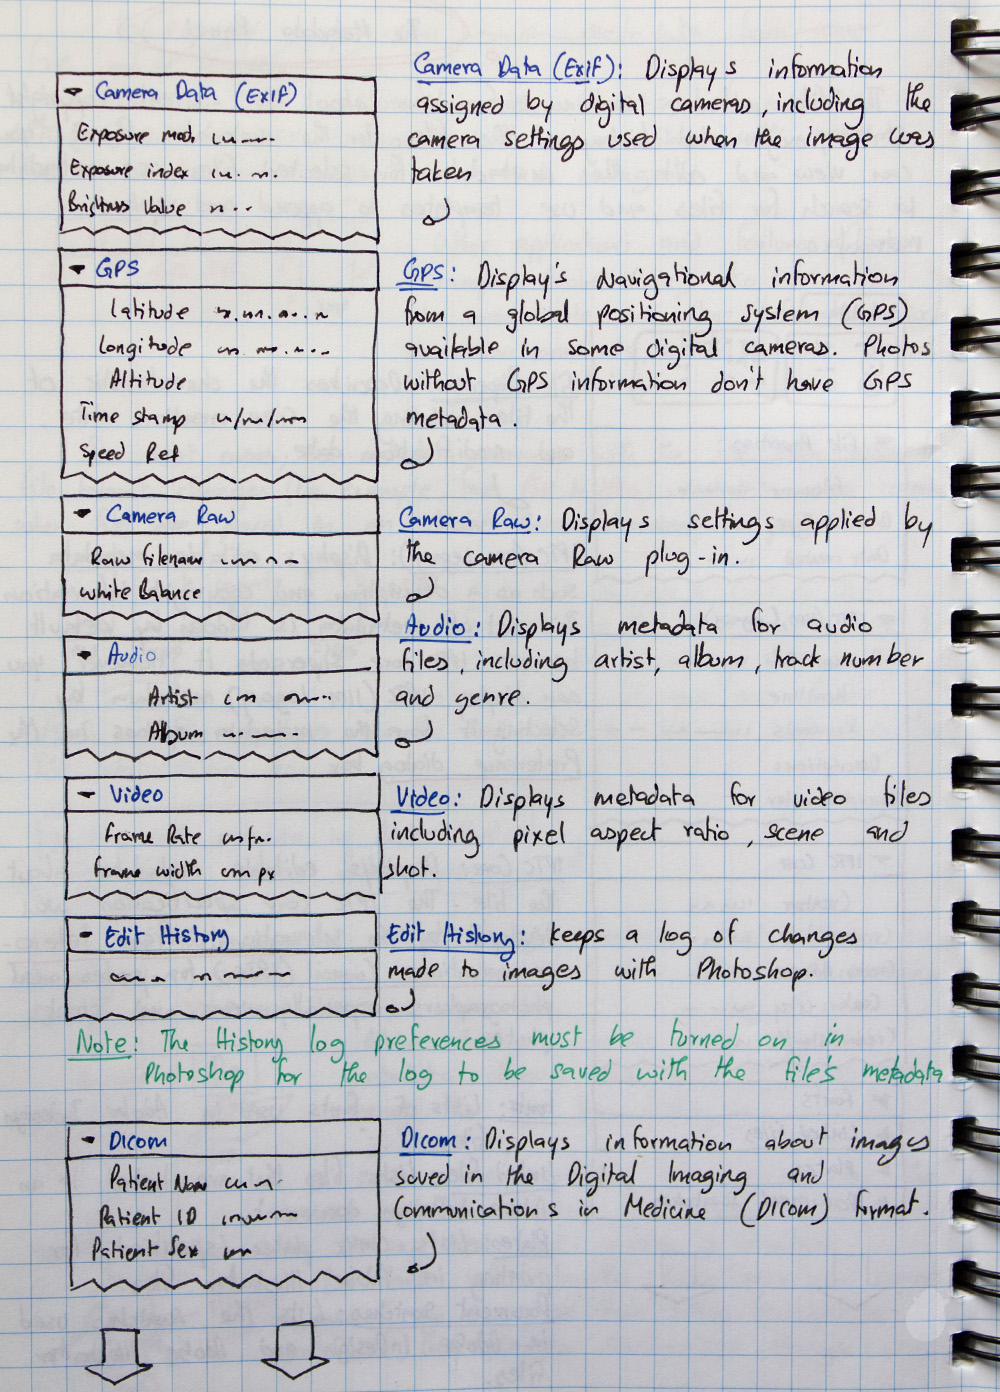 Camera Data (Exif)
Exposure mode
Exposure index
Brightness Value
Camera Data (Exif): Displays information
assigned by digital cameras, including the
camera settings used when the image was
taken
GPS
Latitude
Longitude
Altitude
Time stamp
Speed Ref
GPS: Display's Navigational information
from a global positioning system (GPS)
available in some digital cameras. Photos
without GPS information don't have GPS
metadata.
Camera Raw
Raw filename
White Balance
Camera Raw: Displays settings applied by
the camera Raw plug-in.
Audio
Artist
Album
Audio: Displays metadata for audio
files, including artist, album, track number
and genre.
Video
Frame Rate
frame width px
Video: Displays metadata for video files
including pixel aspect ratio, scene and
shot.
Edit History
Edit History: keeps a log of changes
made to images with Photoshop.
Note: The History log preferences must be turned on in
Photoshop for the log to be saved with the file's metadata
Dicom
Patient Name
Patient ID
Patient Sex
Dicom: Displays information about images
saved in the Digital Imaging and
Communications in Medicine (Dicom) format.